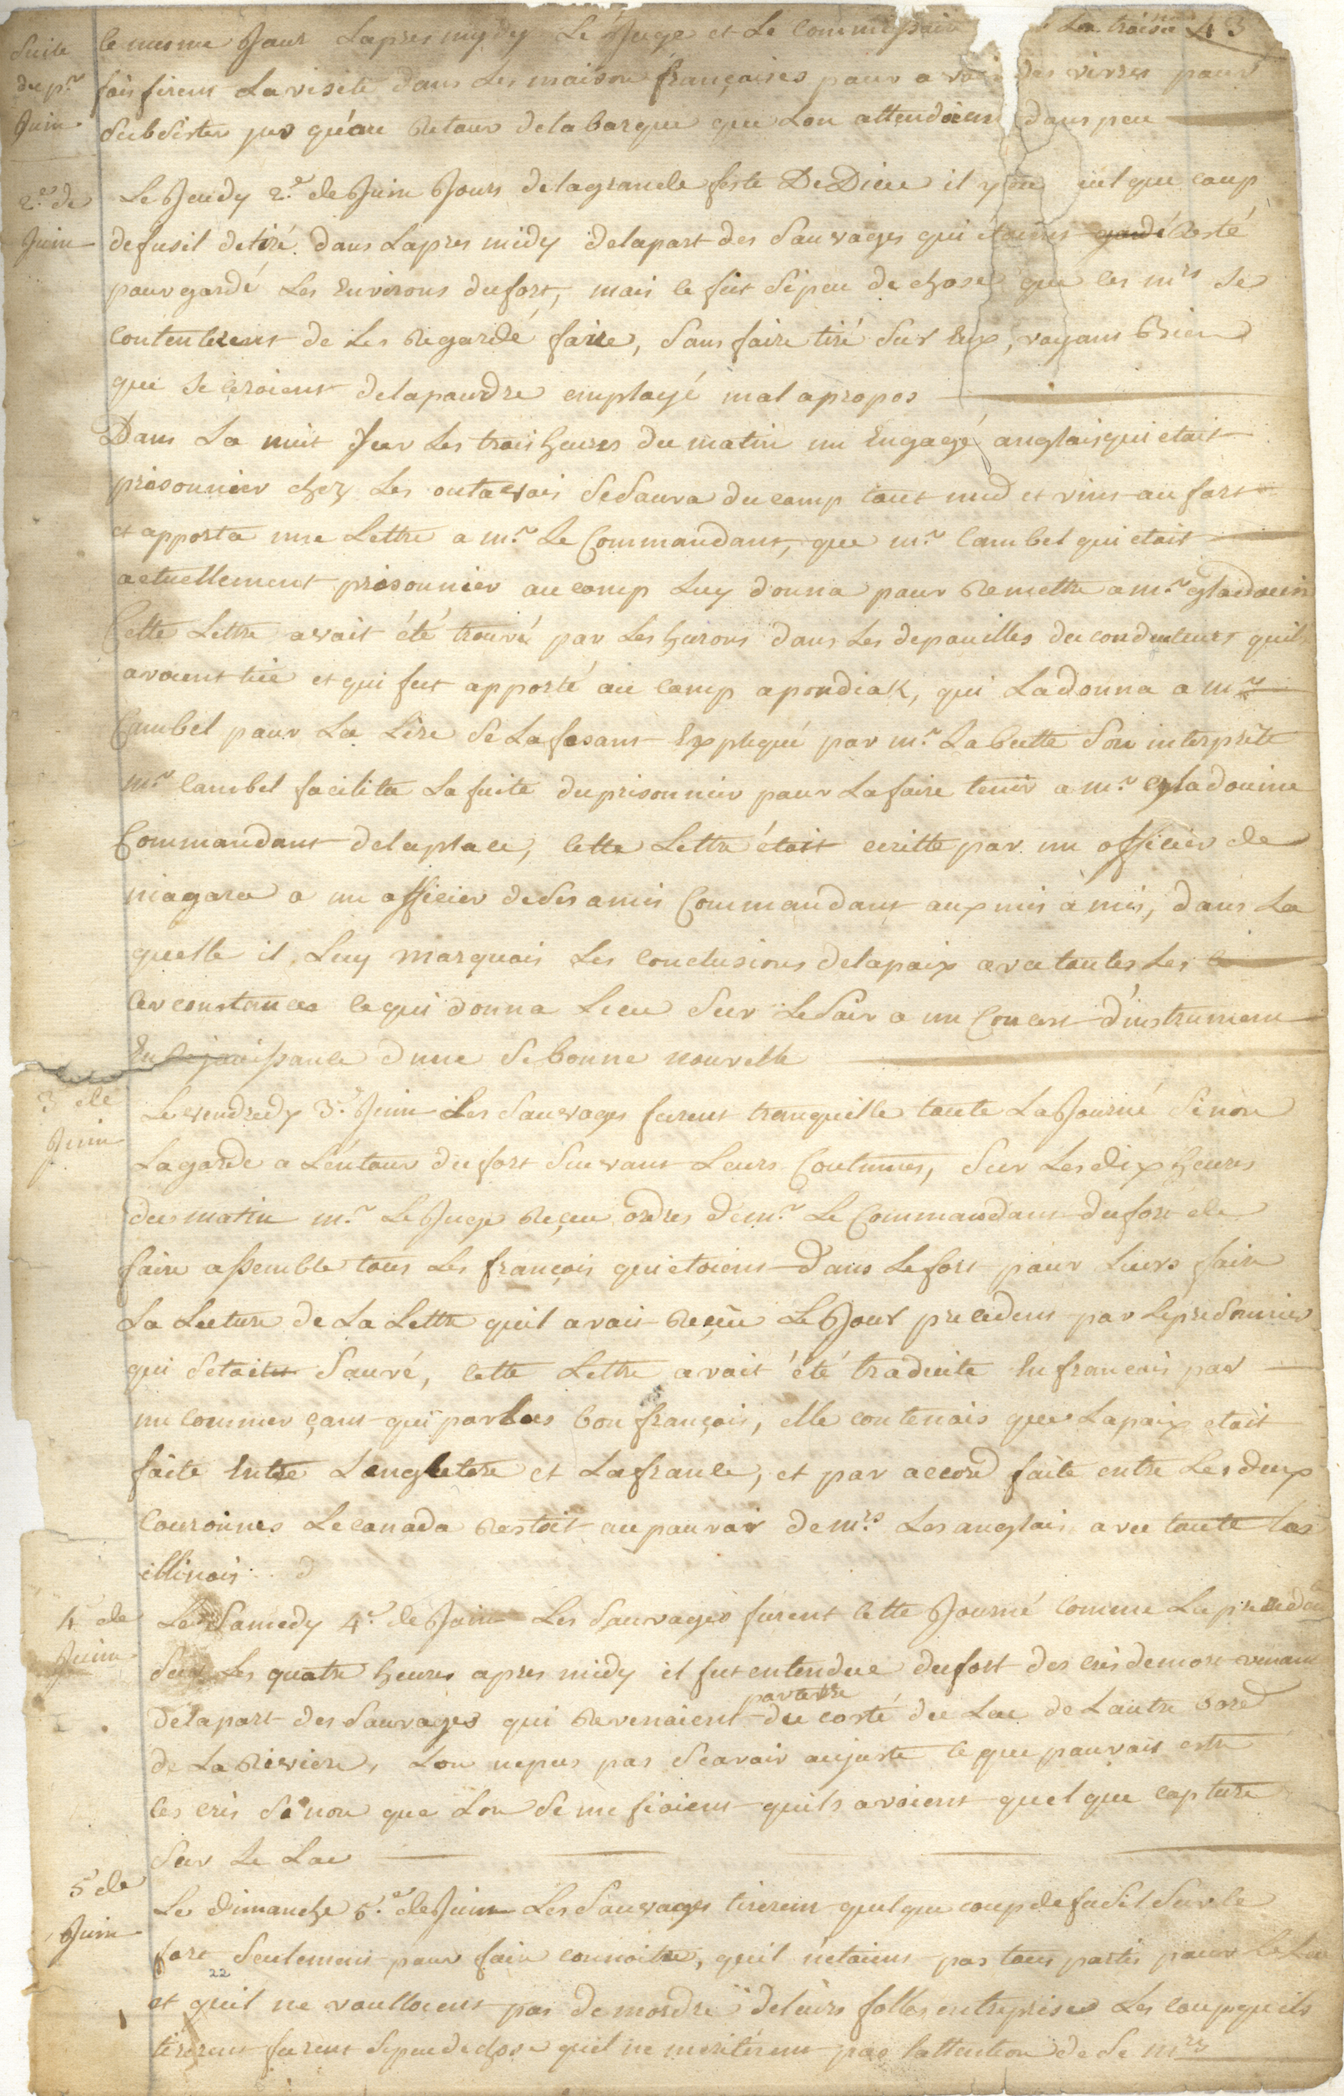 43
Suite
du p.r
Juin
le mesme Jour Lapres mydy Le Juge et Le Commissaire La troisie
fois firent La visite dans Les maison françaises pour avoir des vivres pour
Subsister jus qu'au Retour de la barque que Lon attendoient dans peu
2.e de
Juin
Le Jeudy 2.e de Juin Jours de la grande feste De Dieu il y eu quelque coup
de fusil de tiré dans Lapres midy de la part des Sauvages qui étaient gardé Resté
pour gardé Les Environs du fort, mais ce fut Si peu de chose que ces m.rs Se
Contenterent de Les Regardé faire, Sans faire tiré Sur Eux, voyans Bien
que Se Seroient de la poudre employé mal apropos
Dans La nuit Sur Les trois heures du matin un Engagé anglais qui etait
prisonnier chez Les outavois Se Sauva du camp tout nud et vint au fort
et apporta une Lettre a m.r Le Commandant, que m.r Cambel qui etait
actuellement prisonnier au camp Luy donna pour Remettre a m.r gladouin
Cette Lettre avait été trouvé par Les hurons dans Les depouilles du conducteurs quils
avoient tué et qui fut apporté au camp a pondiak, qui La donna a m.r
Cambel pour La Lire Se La fesant Expliqué par m.r La butte Son interprète
m.r Cambel facilita La fuite du prisonnier pour La faire tenir a m.r gladouine
Commandant de la place, Cette Lettre était ecritte par un officier de
niagara a un officier de Ses amis Commandant aux mis à mis, dans La
quelle il Luy marquais Les conclusions de la paix avec toutes Les
Circonstances ce qui donna Lieu Sur Le Soir a un Concert d'instrument
En Rejouissance dune Si bonne nouvelle
3.e de
Juin
Le vendredy 3.e Juin Les Sauvages furent tranquille toute La Journé Sinon
La garde a Léntour du fort Suivant Leurs Coutumes, Sur Les dix heures
du matin m.r Le Juge Reçeu ordres de m.r Le Commandant du fort de
faire assemble tous Les françois qui etoient dans Le fort pour Leurs faire
La Lecture de La Lettre quil avait Reçûe Le Jour precedent par Le prisonnier
qui Setoit Sauvé, Cette Lettre avait été traduite En francois par
un commerçant qui parlas bon français, elle contenais que La paix etait
faite Entre Langleterre et La france, et par accord faite entre Les deux
Couronnes Le canada Restoit au pouvoir de m.rs Les anglais avec toute Les
illinois
4 de
Juin
Le Samedy 4.e de Juin Les Sauvages furent Cette Journé Comme La precedente
Sur Les quatre heures apres midy il fut entendue du fort des cris de mort venant
par terre
de la part des Sauvages qui Revenaient du costé du Lac de Lautre bord
de La Riviere, Lon ne pus pas Scavoir aujuste ce que pouvait estre
Ces cris Sinon que Lon Se me fioient quils avoient quelque capture
Sur Le Lac
5 de
Juin
Le dimanche 5.e de Juin Les Sauvages tirerent quelque coup de fusil Sur le
fort Seulement pour faire connoitre, quil netaient pas tous partis pour Le Lac
22
et quil ne voulloient pas demordre de leurs folles entreprises Les coups quils
tirerent furent Si peu de chose quil ne meritèrent pas Lattention de Se m.rs